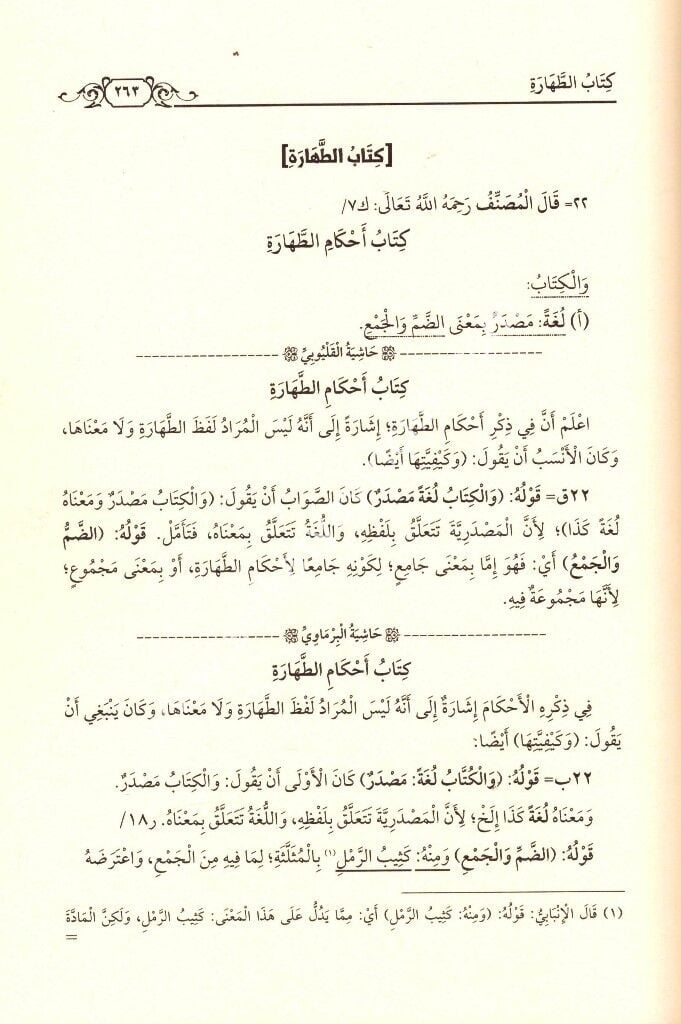 كِتَابُ الطَّهَارَةِ
٢٦٣
[كِتَابُ الطَّهَارَةِ]
٢٢= قَالَ الْمُصَنِّفُ رَحِمَهُ اللَّهُ تَعَالَى: ك٧/
كِتَابُ أَحْكَامِ الطَّهَارَةِ
وَالْكِتَابُ:
(أ) لُغَةً: مَصْدَرٌ بِمَعْنَى الضَّمِّ وَالْجَمْعِ.
حَاشِيَةُ الْقَلْيُوبِيِّ
كِتَابُ أَحْكَامِ الطَّهَارَةِ
اعْلَمْ أَنَّ فِي ذِكْرِ أَحْكَامِ الطَّهَارَةِ؛ إِشَارَةً إِلَى أَنَّهُ لَيْسَ الْمُرَادُ لَفْظَ الطَّهَارَةِ وَلَا مَعْنَاهَا،
وَكَانَ الْأَنْسَبُ أَنْ يَقُولَ: (وَكَيْفِيَّتِهَا أَيْضًا).
٢٢ق= قَوْلُهُ: (وَالْكِتَابُ لُغَةً مَصْدَرٌ) كَانَ الصَّوَابُ أَنْ يَقُولَ: (وَالْكِتَابُ مَصْدَرٌ وَمَعْنَاهُ
لُغَةً كَذَا)؛ لِأَنَّ الْمَصْدَرِيَّةَ تَتَعَلَّقُ بِلَفْظِهِ، وَاللُّغَةُ تَتَعَلَّقُ بِمَعْنَاهُ، فَتَأَمَّلْ. قَوْلُهُ: (الضَّمُّ
وَالْجَمْعُ) أَيْ: فَهُوَ إِمَّا بِمَعْنَى جَامِعٍ؛ لِكَوْنِهِ جَامِعًا لِأَحْكَامِ الطَّهَارَةِ، أَوْ بِمَعْنَى مَجْمُوعٍ؛
لِأَنَّهَا مَجْمُوعَةٌ فِيهِ.
حَاشِيَةُ الْبِرْمَاوِيِّ
كِتَابُ أَحْكَامِ الطَّهَارَةِ
فِي ذِكْرِهِ الْأَحْكَامَ إِشَارَةٌ إِلَى أَنَّهُ لَيْسَ الْمُرَادُ لَفْظَ الطَّهَارَةِ وَلَا مَعْنَاهَا، وَكَانَ يَنْبَغِي أَنْ
يَقُولَ: (وَكَيْفِيَّتِهَا) أَيْضًا:
٢٢ب= قَوْلُهُ: (وَالْكُتَّابُ لُغَةً: مَصْدَرٌ) كَانَ الْأَوْلَى أَنْ يَقُولَ: وَالْكِتَابُ مَصْدَرٌ.
وَمَعْنَاهُ لُغَةً كَذَا إِلَخْ؛ لِأَنَّ الْمَصْدَرِيَّةَ تَتَعَلَّقُ بِلَفْظِهِ، وَاللُّغَةَ تَتَعَلَّقُ بِمَعْنَاهُ. ر١٨/
قَوْلُهُ: (الضَّمِّ وَالْجَمْعِ) وَمِنْهُ: كَثِيبُ الرَّمْلِ (١) بِالْمُثَلَّثَةِ؛ لِمَا فِيهِ مِنَ الْجَمْعِ، وَاعْتَرَضَهُ
(١) قَالَ الْإِنْبَابِيُّ: قَوْلُهُ: (وَمِنْهُ: كَثِيبُ الرَّمْلِ) أَيْ: مِمَّا يَدُلُّ عَلَى هَذَا الْمَعْنَى: كَثِيبُ الرَّمْلِ، وَلَكِنَّ الْمَادَّةَ
=